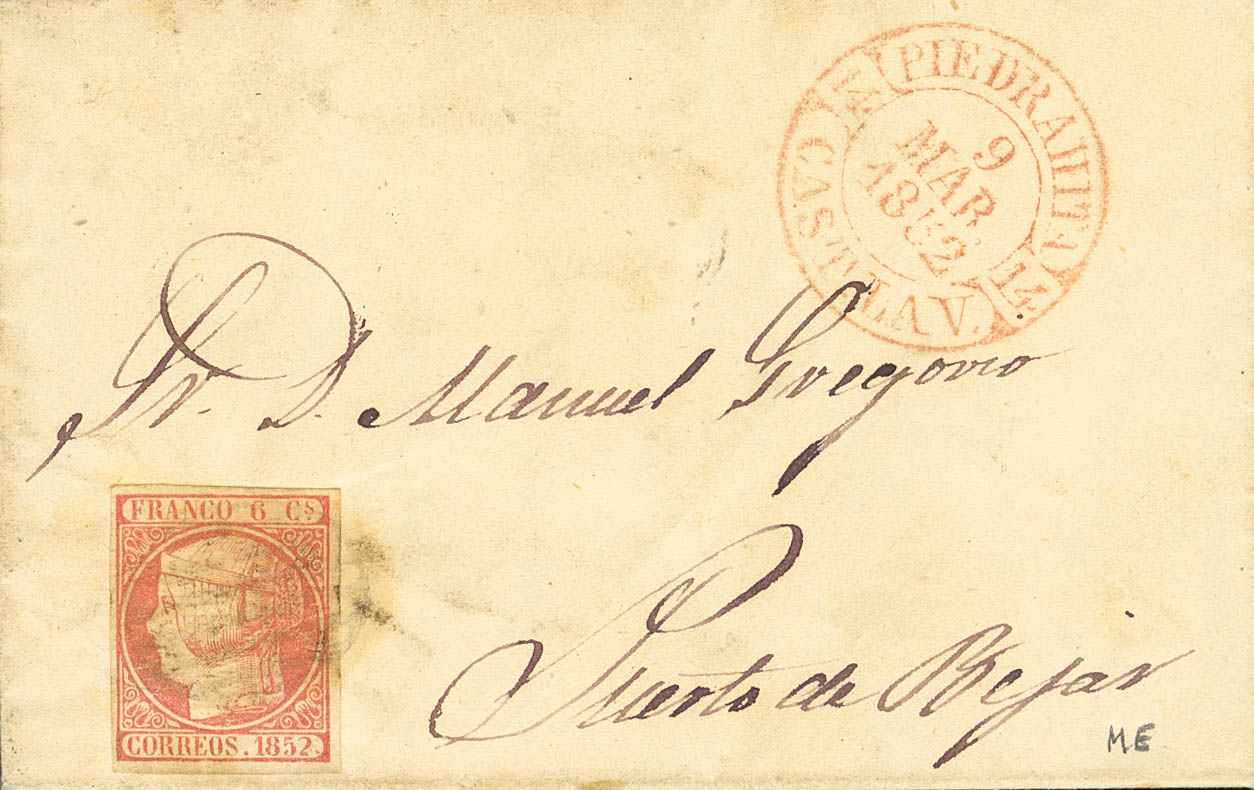 PIEDRAHITA
14
9
MAR
1852
14
CAST.LA V.
Sr. D. Manuel Gregorio
FRANCO 6 Cs
Puerto de Bejar
CORREOS. 1852.
ME